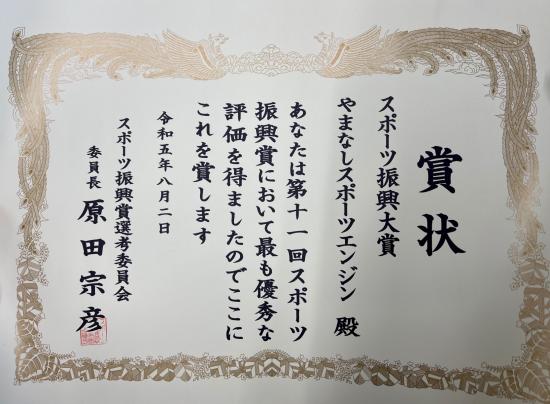 賞状
スポーツ振興大賞
やまなしスポーツエンジン 殿
あなたは第十一回スポーツ
振興賞において最も優秀な
評価を得ましたのでここに
これを賞します
令和五年八月二日
スポーツ振興賞選考委員会
委員長 原田宗彦